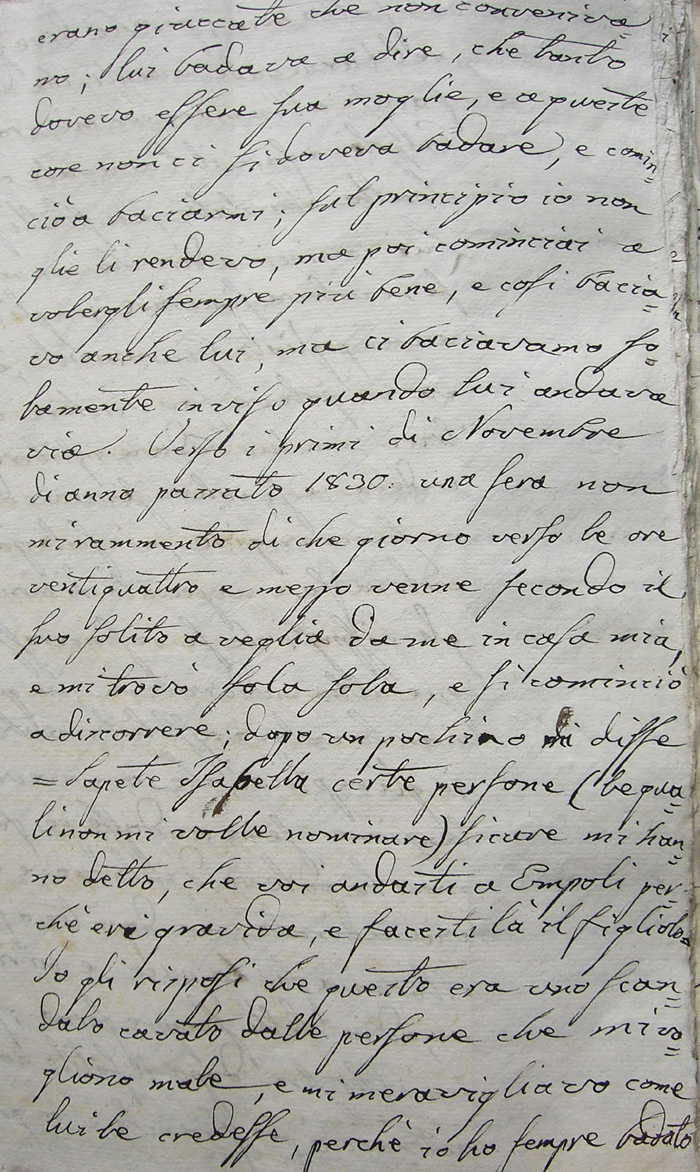 erano giuccate che non conveniva=
no; lui badava a dire, che tanto
dovevo essere sua moglie, e a queste
cose non ci si doveva badare, e comin=
ciò a baciarmi; sul principio io non
glie li rendevo, ma poi cominciai a
volergli sempre più bene, e così bacia=
vo anche lui, ma ci baciavamo so=
lamente in viso quando lui andava
via. Verso i primi di Novembre
di anno passato 1830. una sera non
mi rammento di che giorno verso le ore
ventiquattro e mezzo venne secondo il
suo solito a veglia da me in casa mia,
e mi trovò sola sola, e si cominciò
a discorrere; dopo un pochino mi disse
= Sapete Isabella certe persone (le qua=
li non mi volle nominare) sicure mi han=
no detto, che voi andasti a Empoli per=
chè eri gravida, e facesti là il figliolo=
Io gli risposi che questo era uno scan=
dalo cavato dalle persone che mi vo=
gliono male, e mi meravigliavo come
lui le credesse, perchè io ho sempre badato